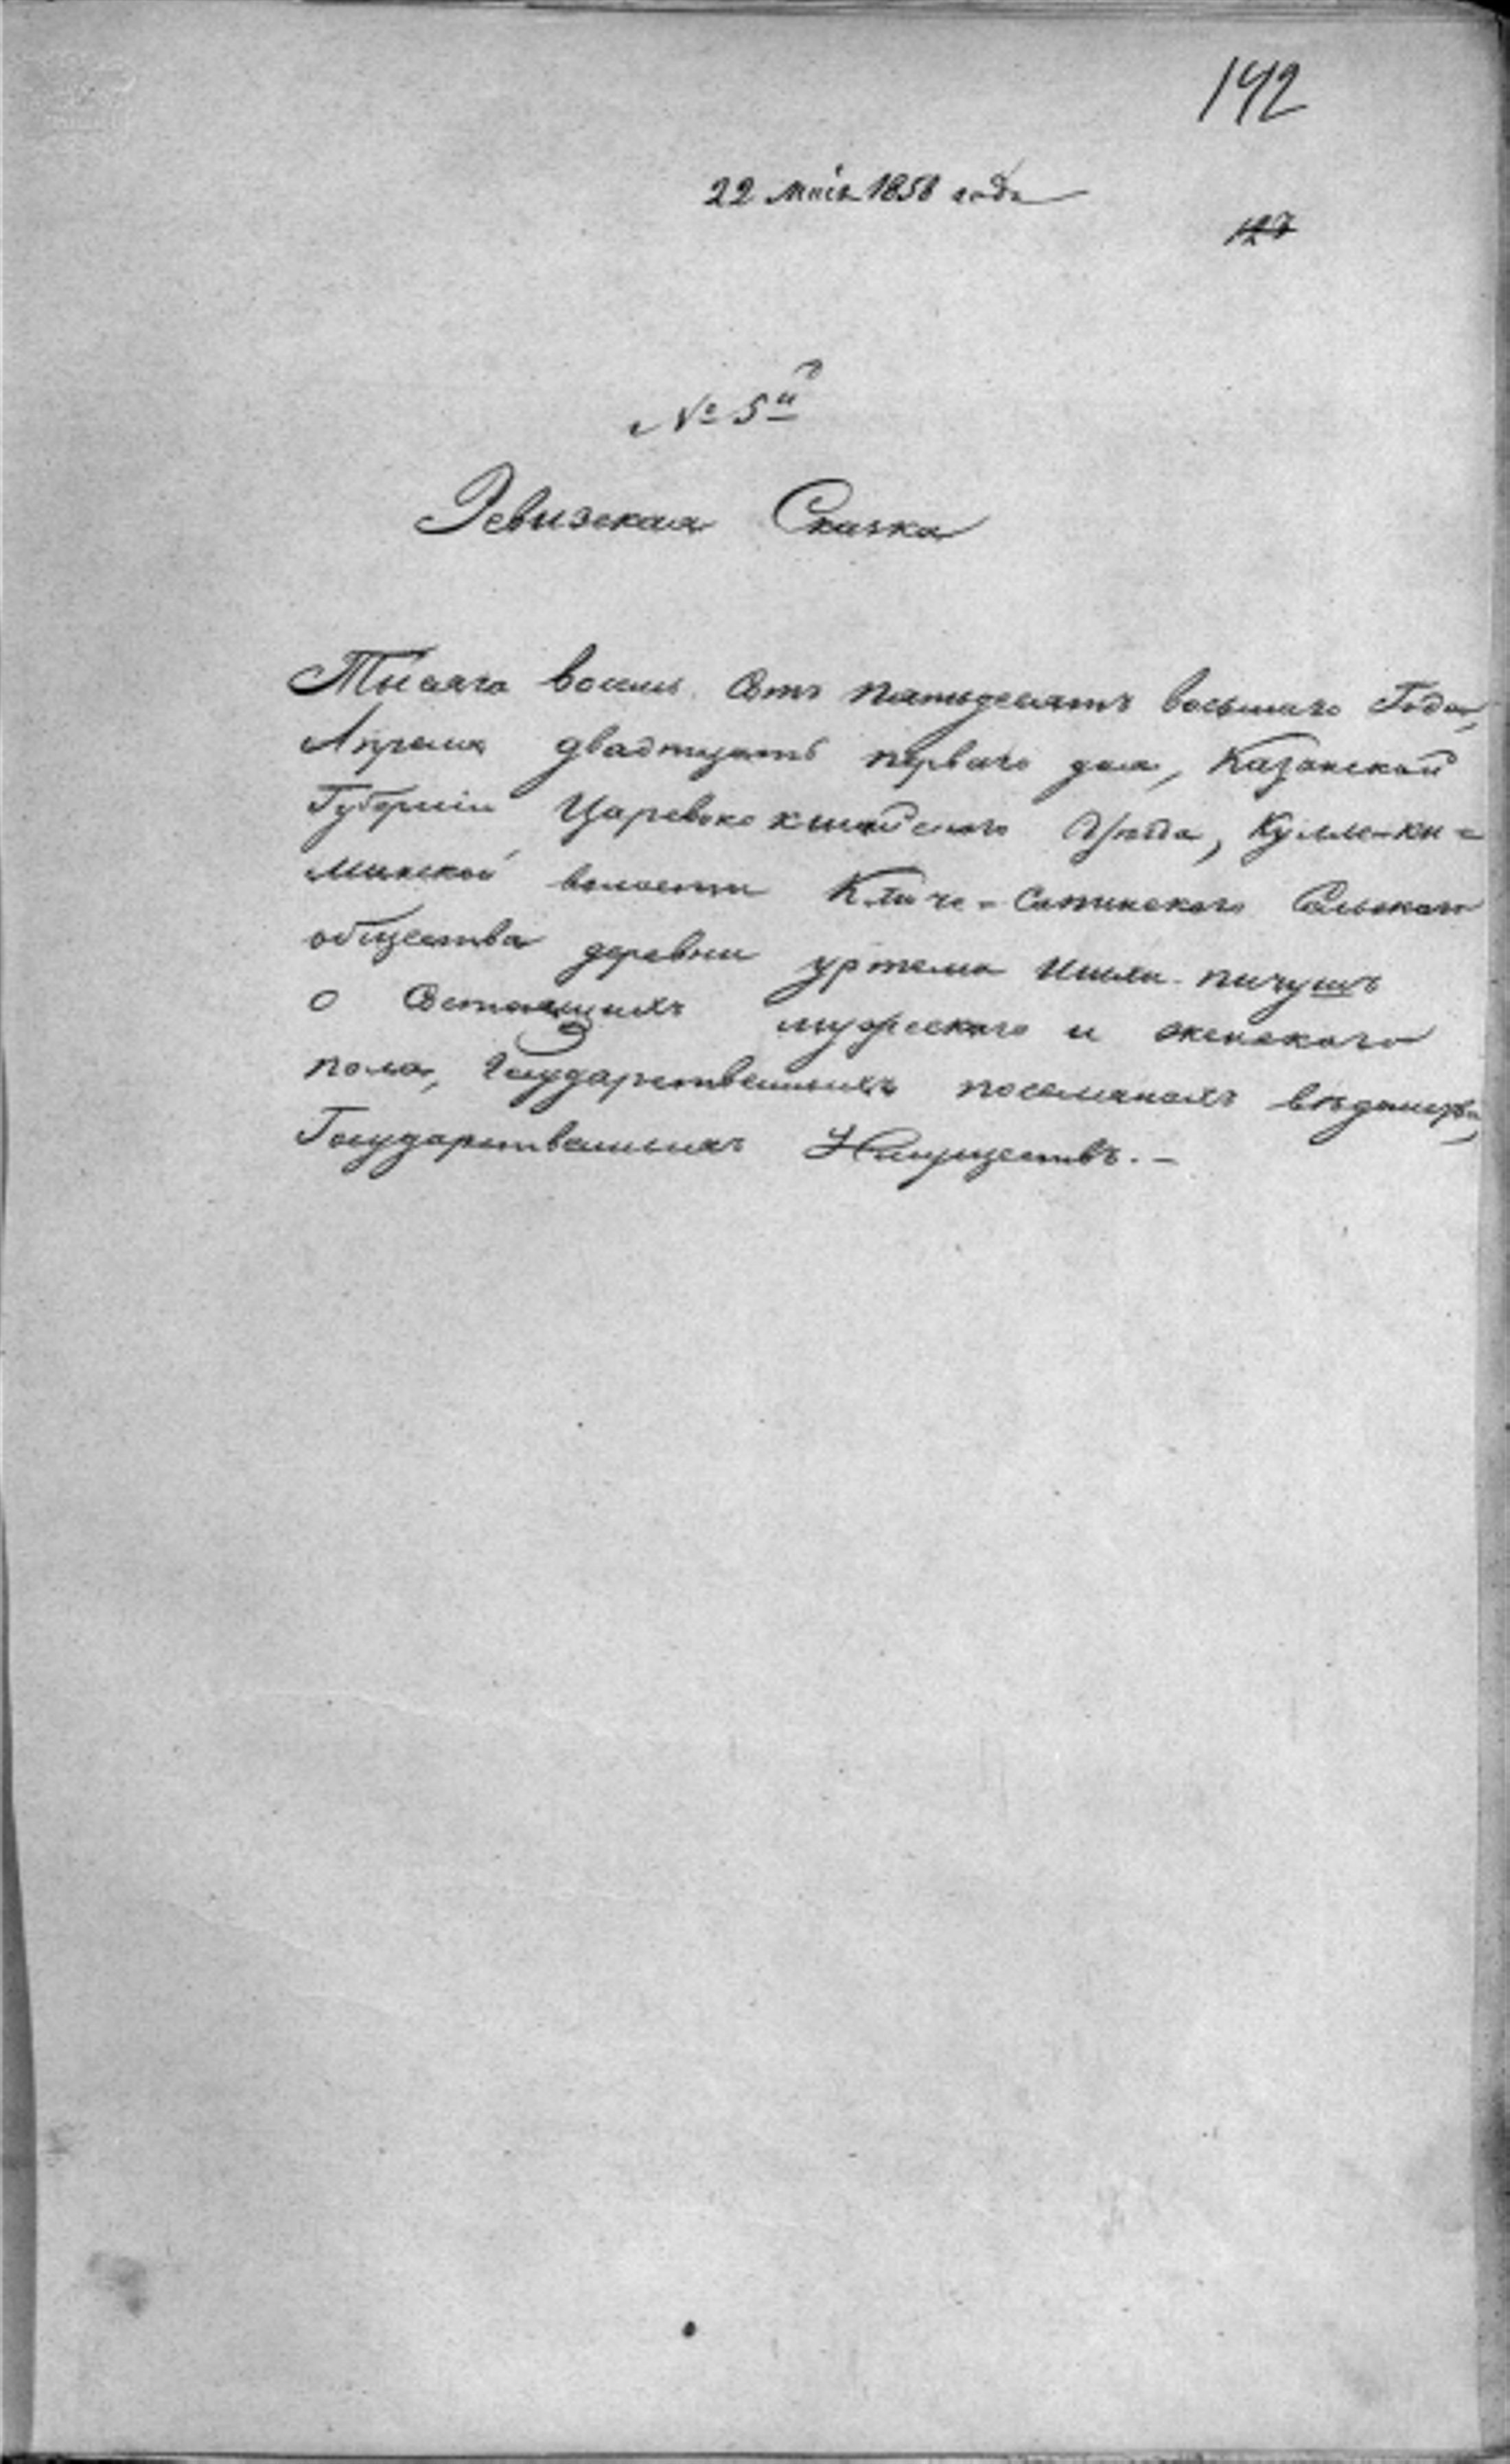 142
22 мая 1858 года
127
№ 5й
Ревизская Сказка
Тысяча восемь сотъ пятьдесятъ восьмаго Года,
Апреля двадтцать перваго дня, Казанской
Губерніи Царевококшайскаго Уѣзда, Кулле-ки=
минской волости Ключе-Сапинскаго Сельскаго
общества деревни уртемъ пичушъ
о Состоящихъ мужескаго и женскаго
пола, Государственныхъ поселянахъ вѣдомства
Государственныхъ Имуществъ.-